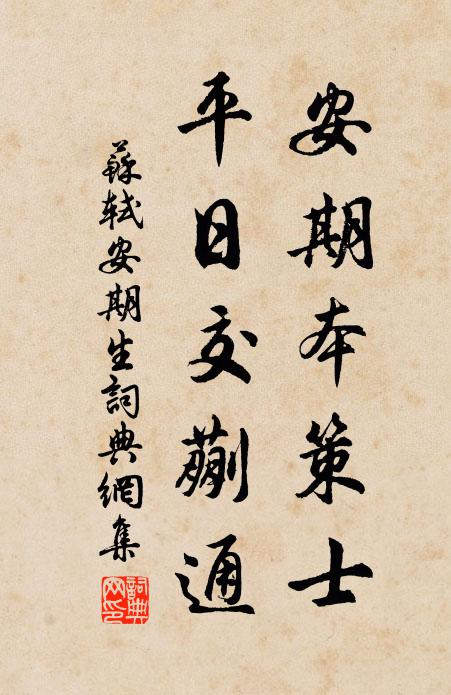 安期本策士
平日交蒯通
蘇軾安期生詞典網集
詞典網印